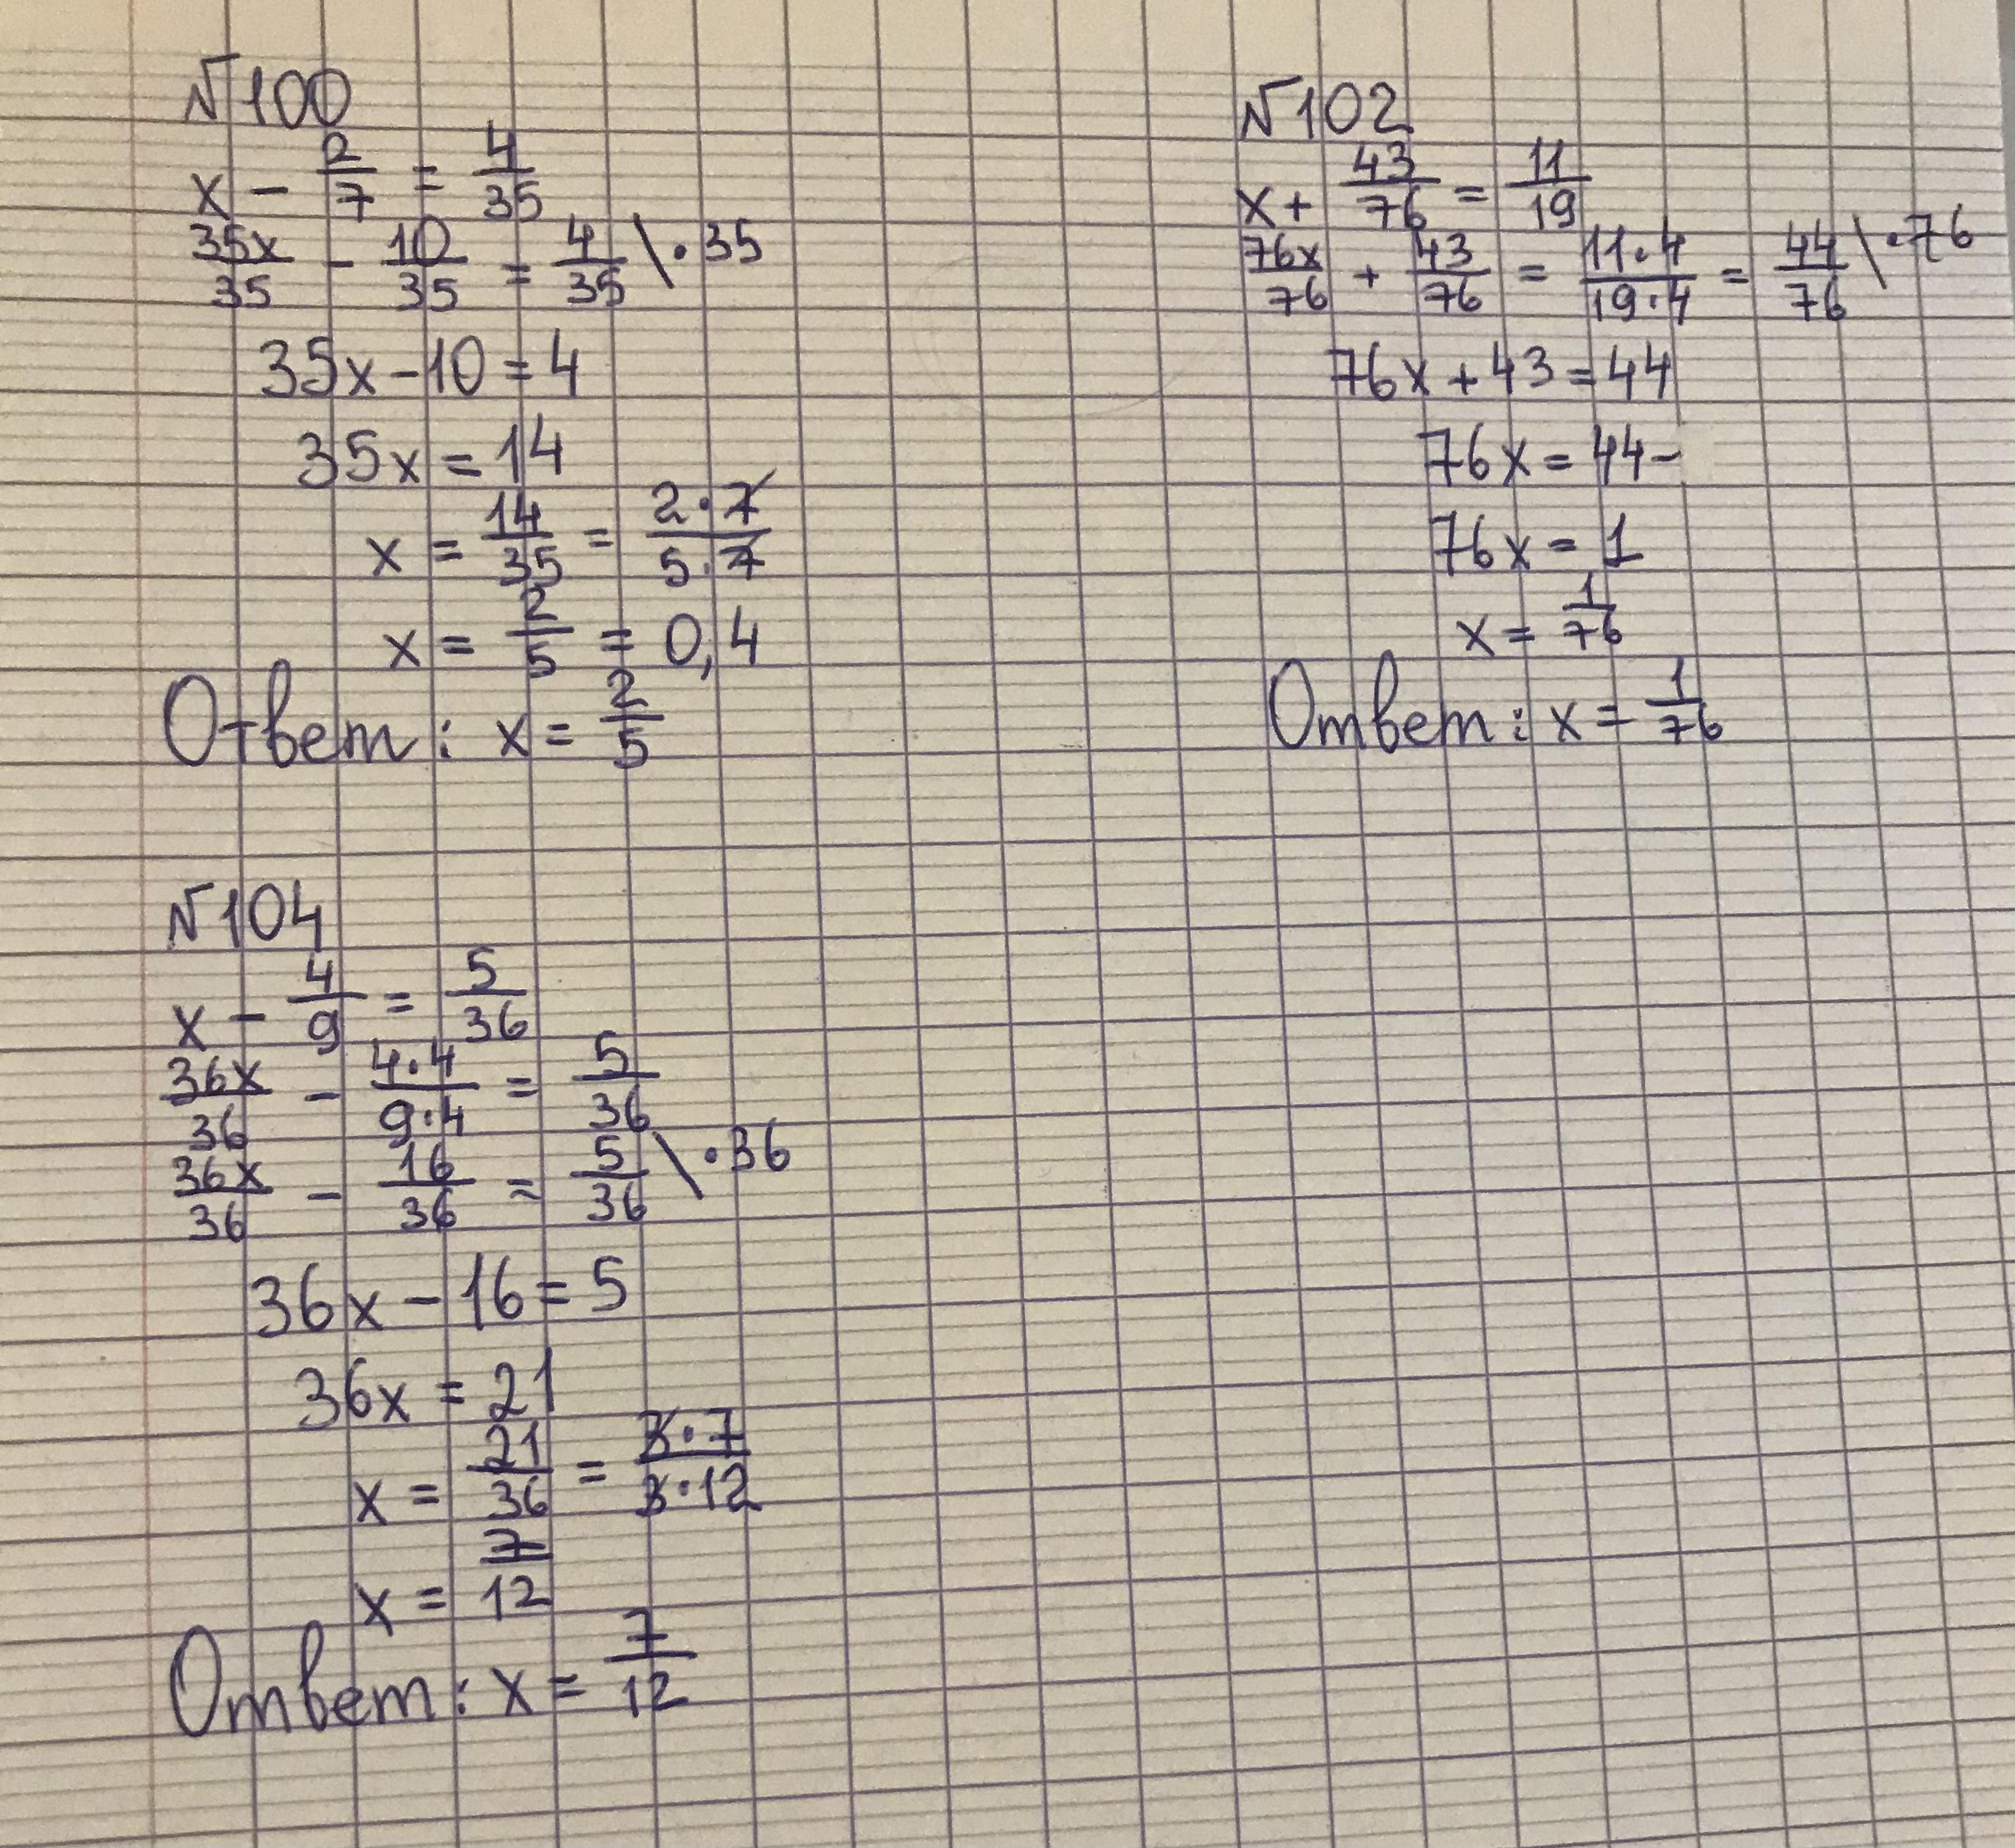 №100
x - 2/7 = 4/35
35x/35 - 10/35 = 4/35 \ ·35
35x - 10 = 4
35x = 14
x = 14/35 = 2·7/5·7
x = 2/5 = 0,4
Ответ: x = 2/5
№102
x + 43/76 = 11/19
76x/76 + 43/76 = 11·4/19·4 = 44/76 \ ·76
76x + 43 = 44
76x = 44-
76x = 1
x = 1/76
Ответ: x = 1/76
№104
x - 4/9 = 5/36
36x/36 - 4·4/9·4 = 5/36
36x/36 - 16/36 = 5/36 \ ·36
36x - 16 = 5
36x = 21
x = 21/36 = 3·7/3·12
x = 7/12
Ответ: x = 7/12